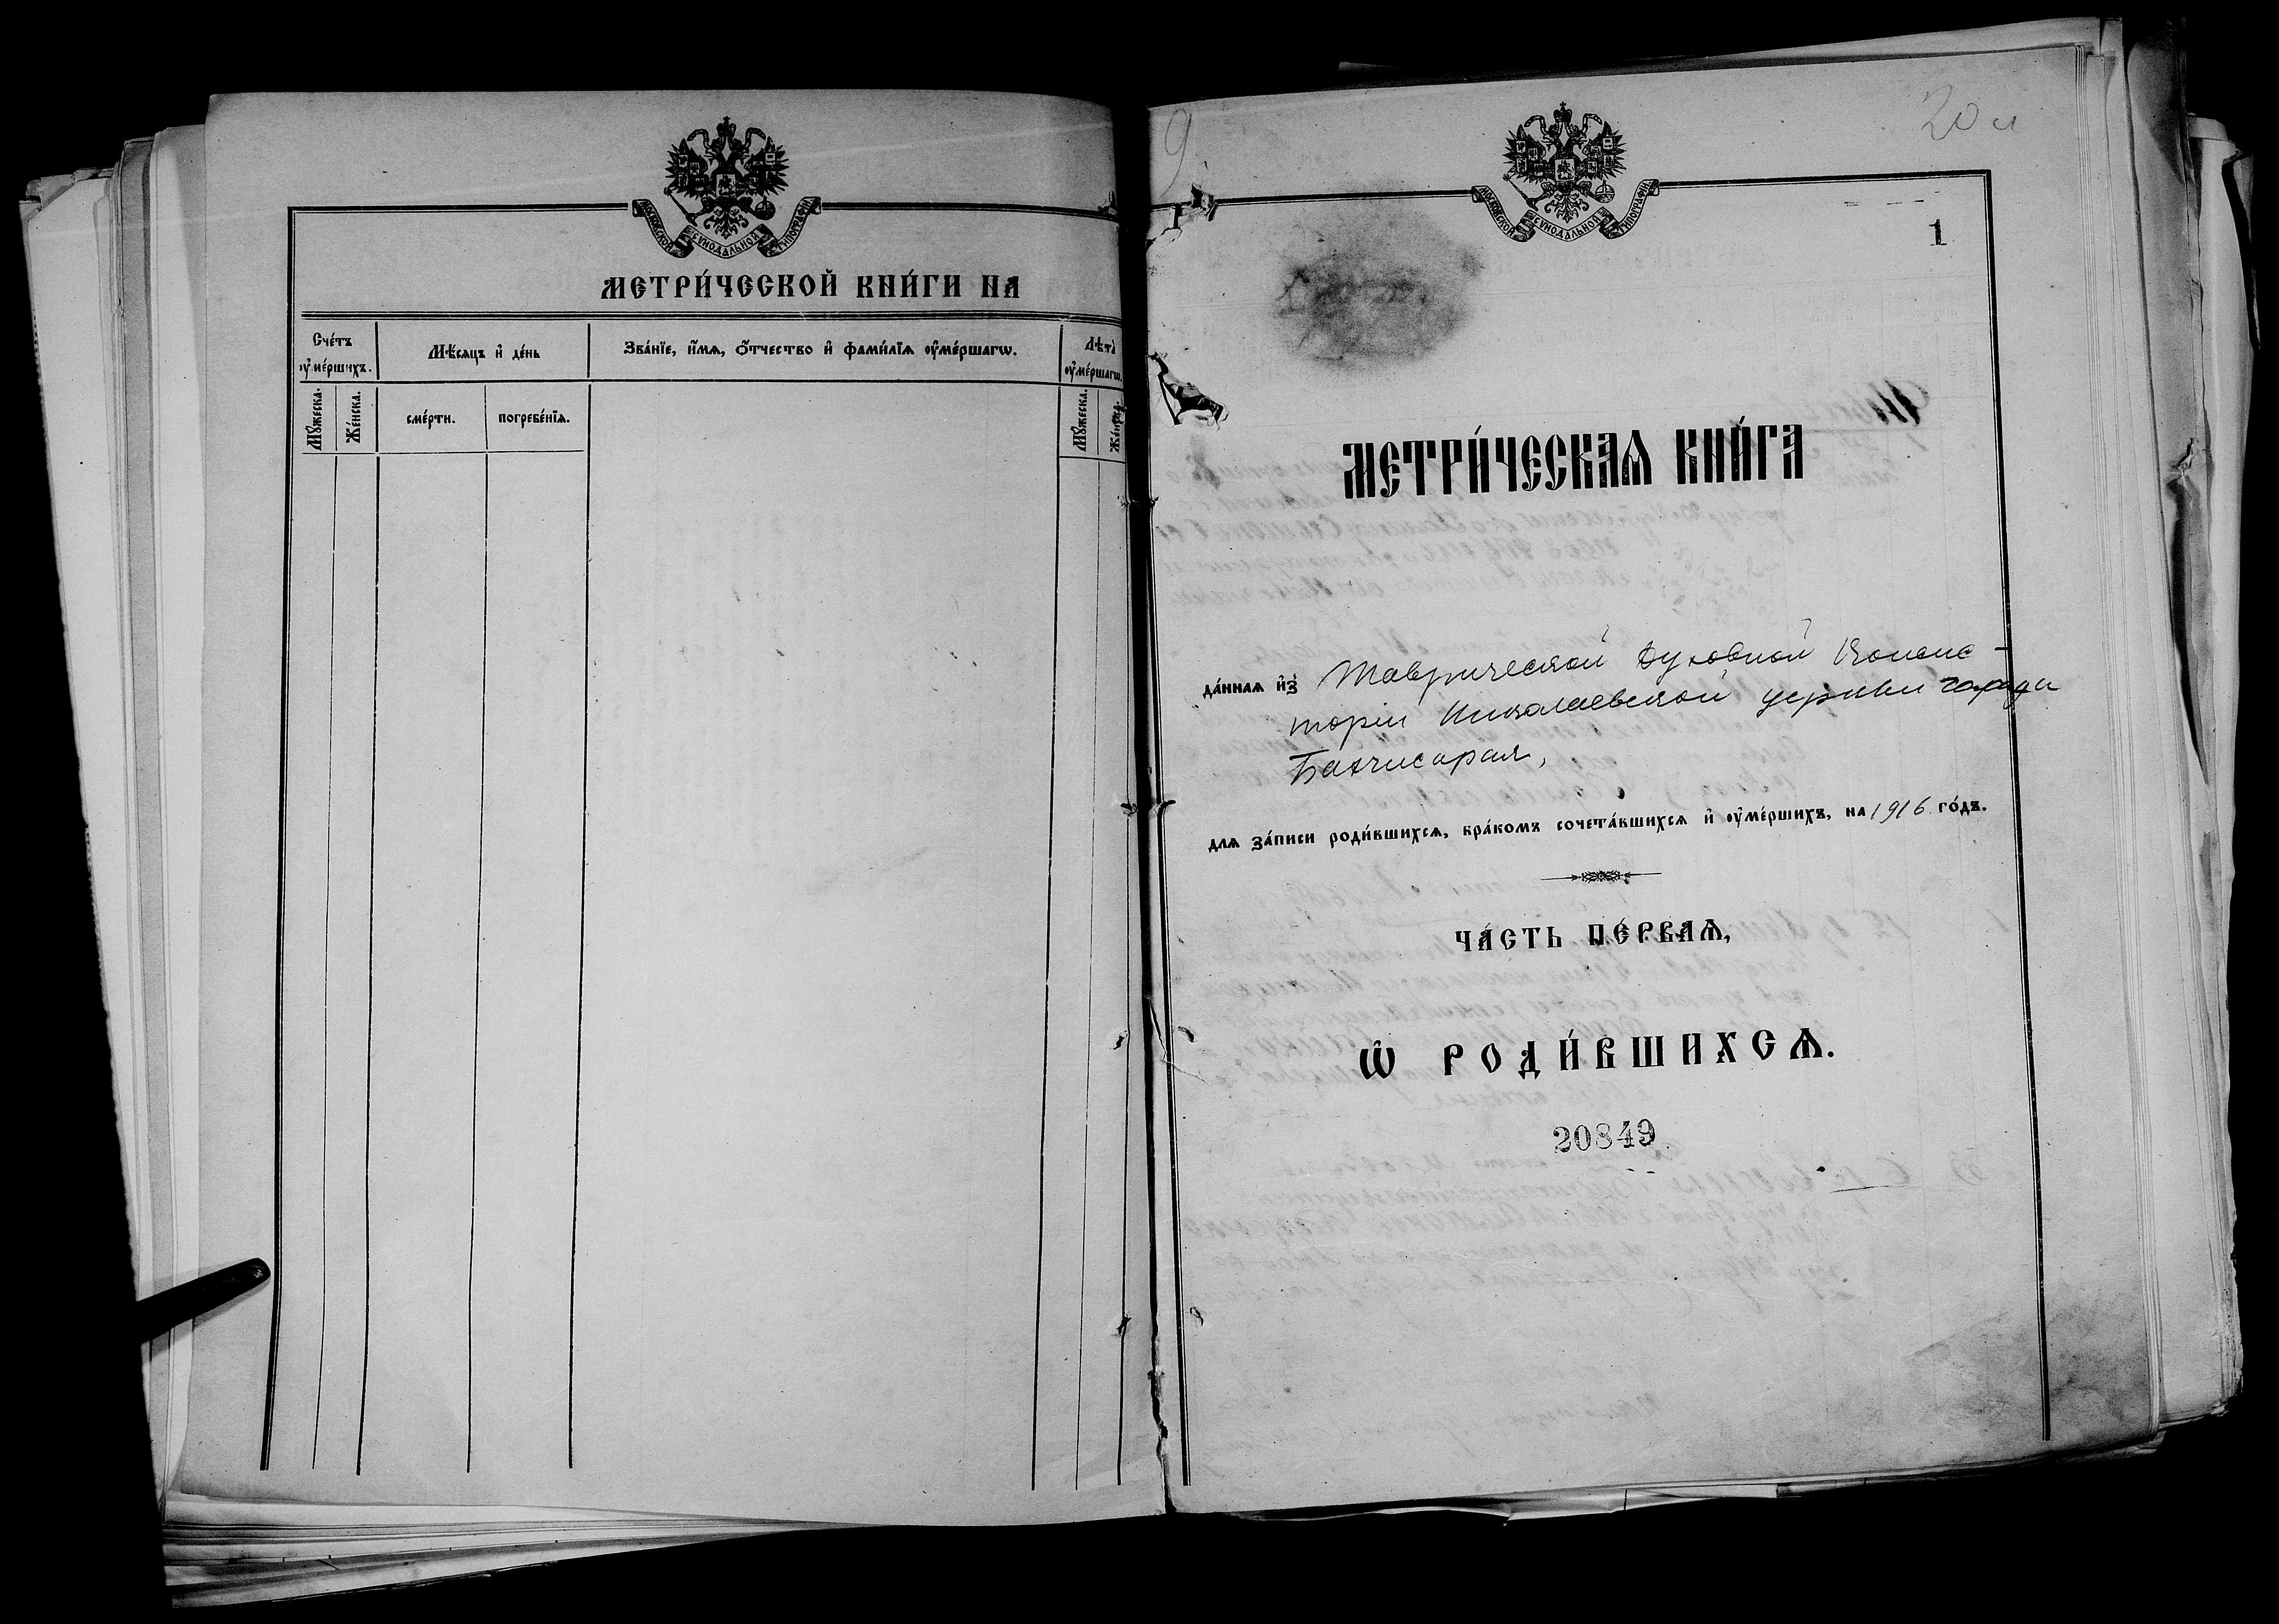 МОСКОВСКОЙ СѴНОДАЛЬНОЙ ТИПОГРАФІИ
МЕТРИ́ЧЕСКОЙ КНИ́ГИ НА
Сче́тъ ᲂу҆ме́ршихъ.
Мѣ́сяцъ и҆ де́нь
Зва́нїе, и҆́мѧ, ѻ҆́тчество и҆ фами́лїѧ ᲂу҆ме́ршагѡ.
Лѣта̀ ᲂу҆ме́ршагѡ.
Мꙋ́жеска.
Же́нска.
сме́рти.
погребе́нїѧ.
Мꙋ́жеска.
Же́нска.
9.
20 л
МОСКОВСКОЙ СѴНОДАЛЬНОЙ ТИПОГРАФІИ
1
МЕТРИ́ЧЕСКАѦ КНИ́ГА
да́ннаѧ и҆з̾ Таврической Духовной Консис-
торіи Николаевской церкви города
Бахчисарая,
длѧ за́писи роди́вшихсѧ, бра́комъ сочета́вшихсѧ и҆ ᲂу҆ме́ршихъ, на 1916 го́дъ.
ЧА́СТЬ ПЕ́РВАѦ,
Ѽ РОДИ́ВШИХСѦ.
20849